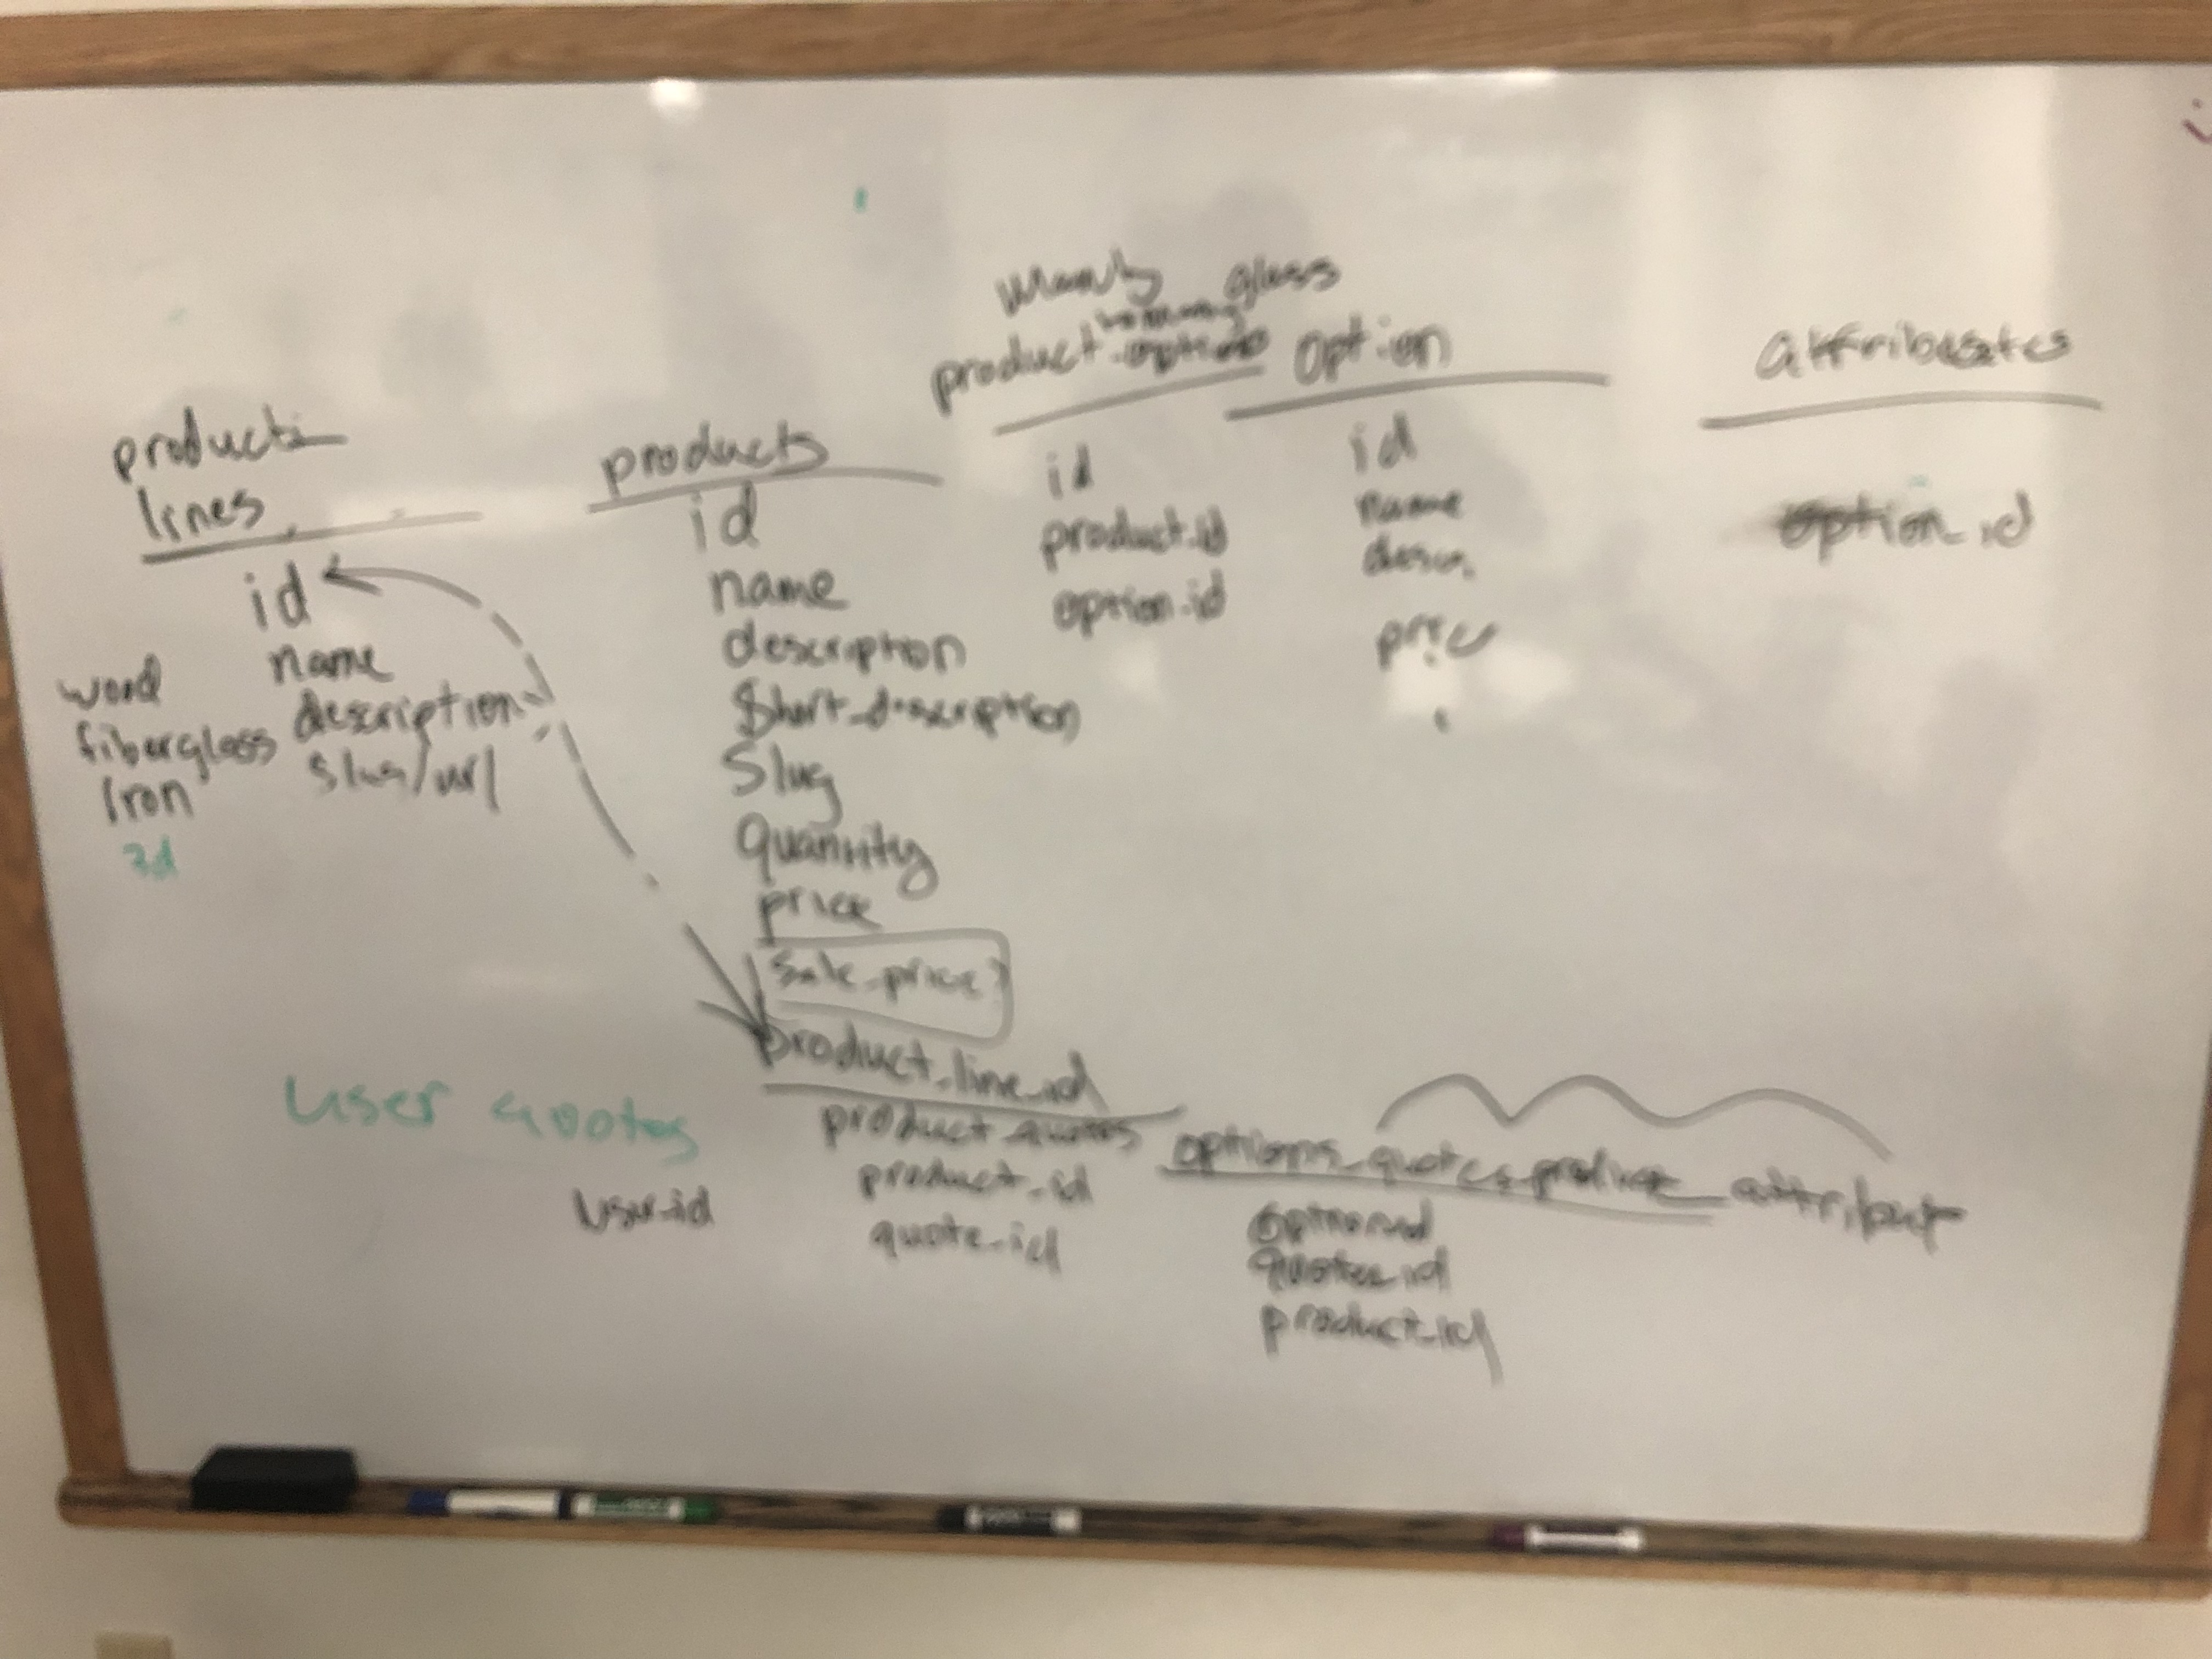 product
lines
id
name
description
slug/url
wood
fiberglass
Iron
products
id
name
description
short_description
Slug
Quantity
price
sale_price
product_line_id
many
product
id
product_id
option_id
glass
option
id
name
price
attributes
option_id
user quotes
user_id
product_quotes
product_id
quote_id
options_quotes_product_attribut
option_id
quotes_id
product_id